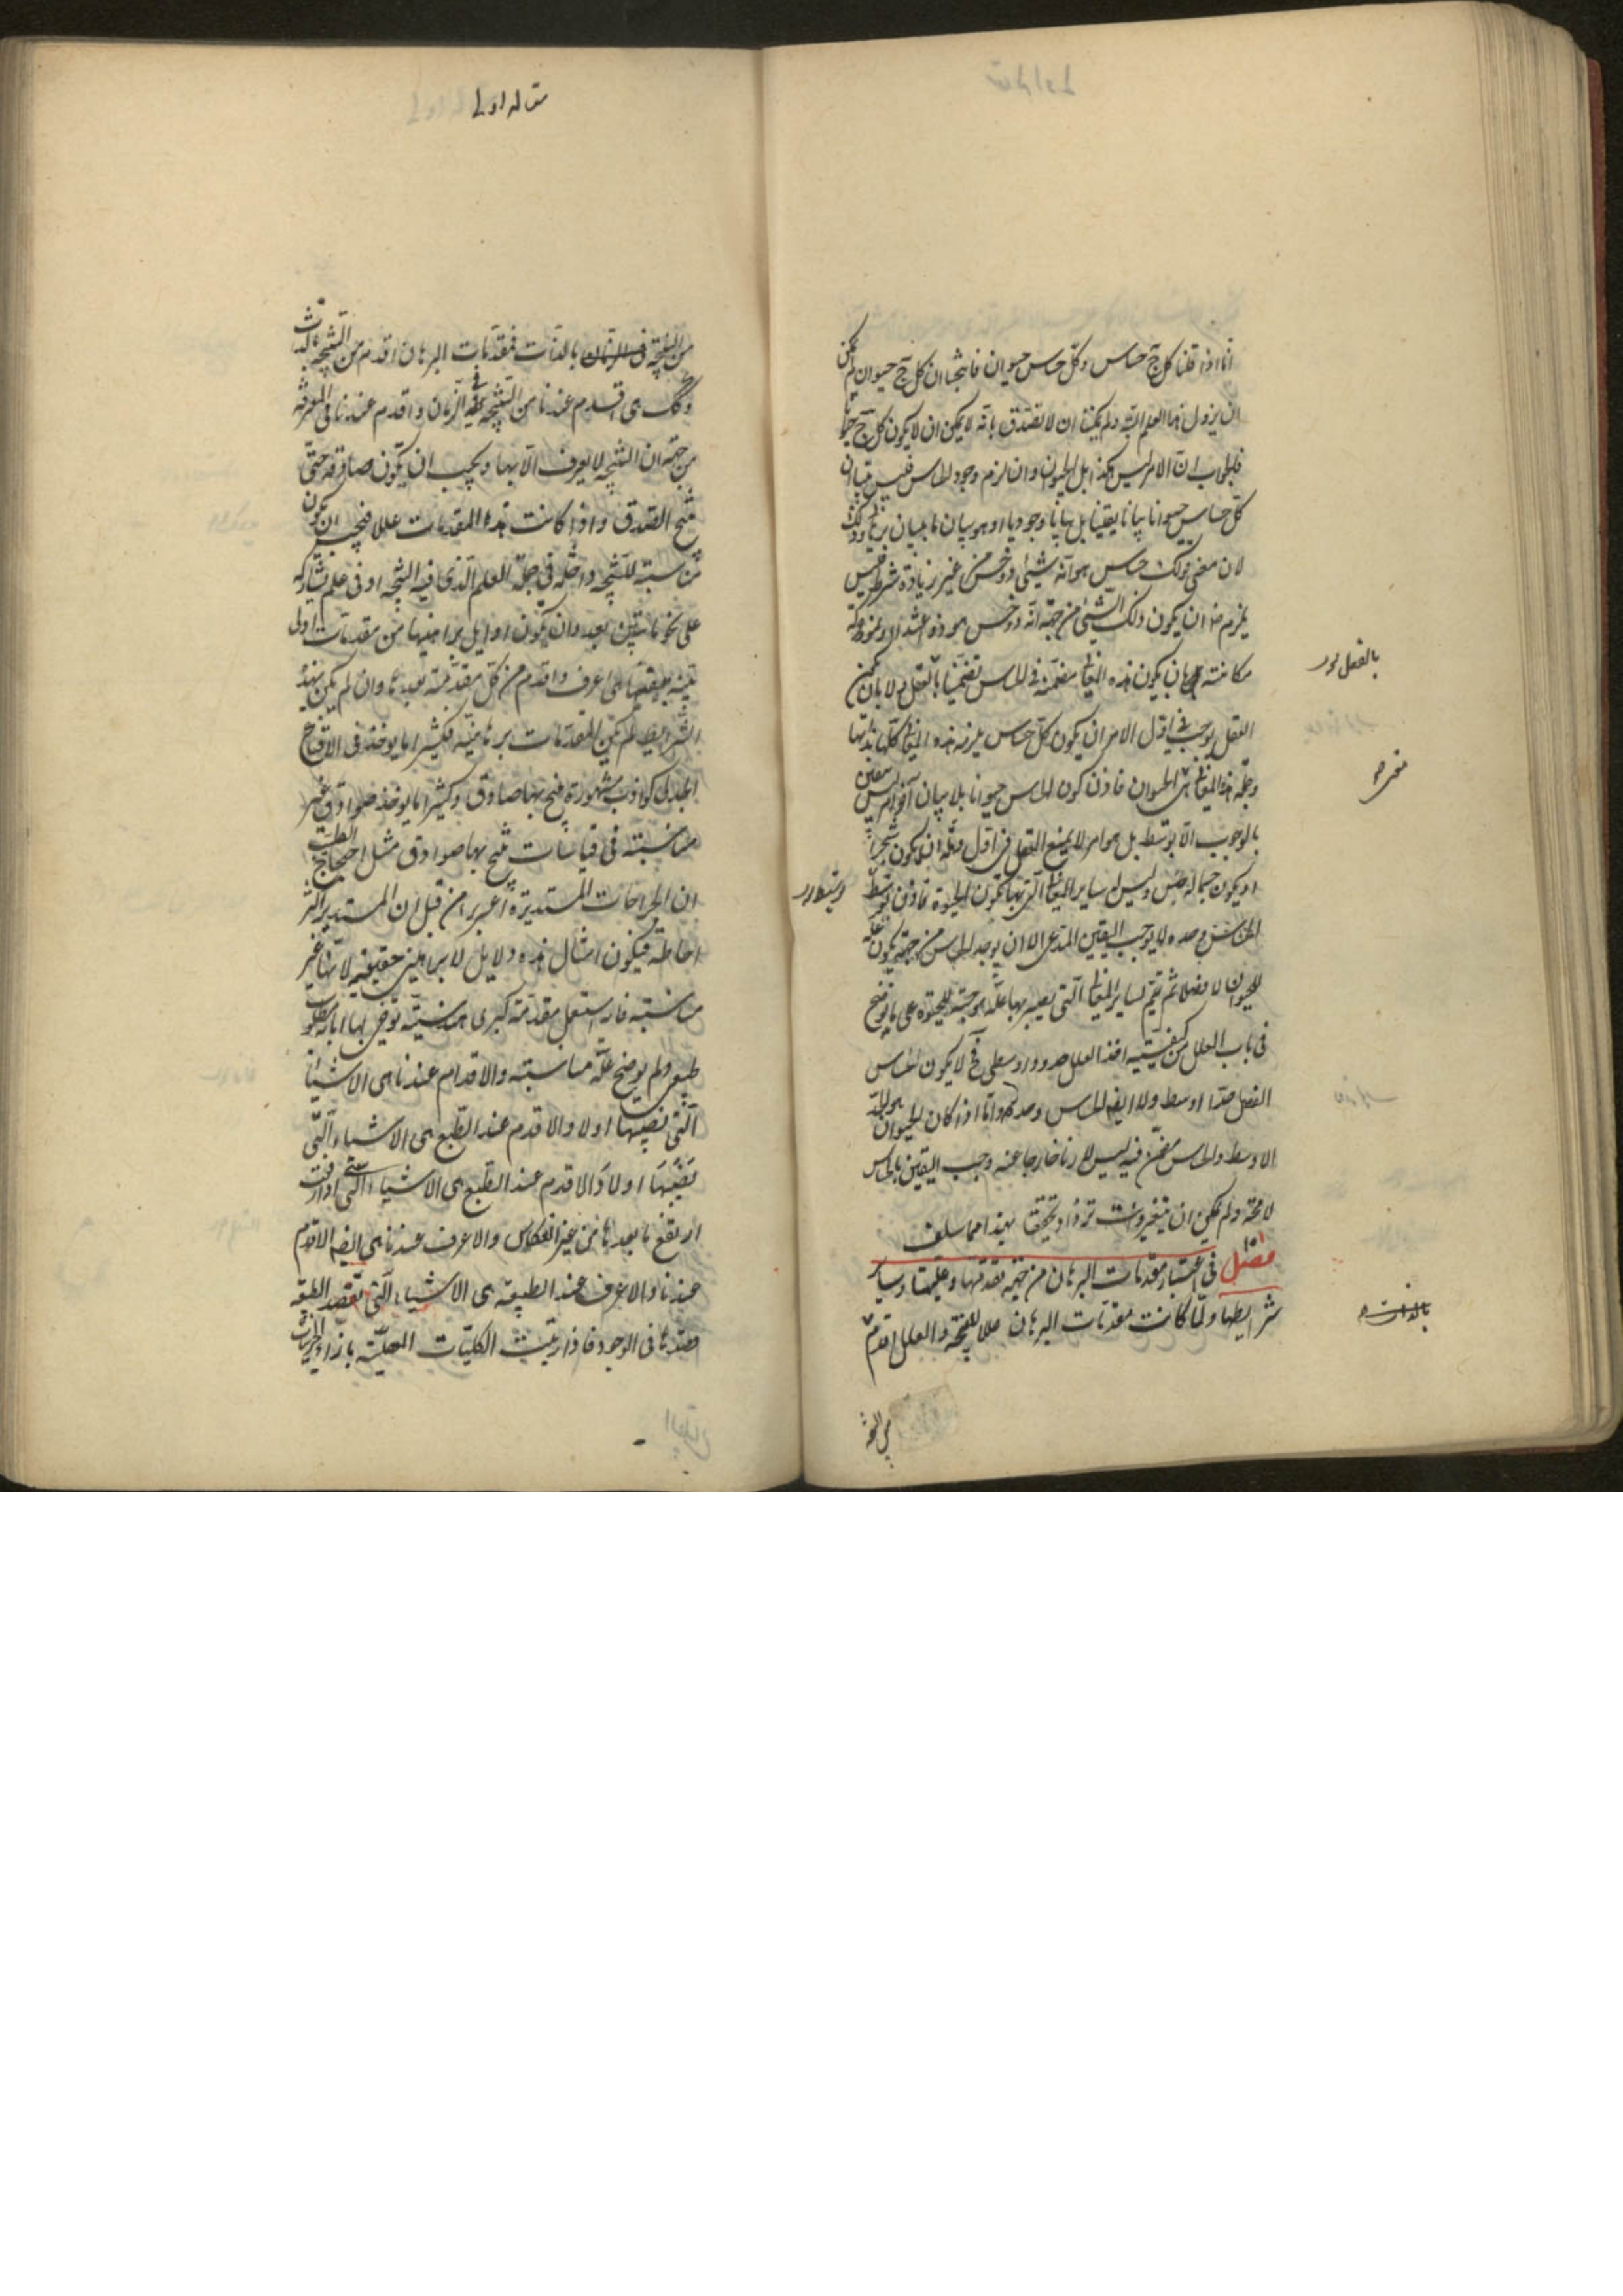 انا اذا قلنا كل ج حساس وكل حساس حيوان فانتج ان كل ج حيوان لم يمكن
ان يزول هذا العلم البتة ولم يمكننا ان لا نصدق بانه لا يمكن ان لا يكون كل ج حيوانا
فالجواب ان الامر ليس هكذا بل الحيوان وان لزم وجود الحاس فليس تبيان
كل حساس حيوانا بيانا يقينا بل بيانا وجوديا او هو بيان ما ببيان
لان معنى قولك حساس هو انه شيئ ذو حس من غير زيادة شرط فليس
يلزم منه ان يكون ذلك الشيئ من جهة انه ذو حس هو ذو اغتذاء ونمو وحركة
مكانية بان يكون هذه المعانى مضمنة فى الحاس تضمنا بالفعل ولا بان يمكن
العقل يوجب فى اول الامر ان يكون كل حساس يلزمه هذه المعانى كلها بذاتها
وجملة هذه المعانى هى الحيوان فاذن كون الحاس حيوانا بلا بيان آخر ليس بيقين
بالوجوب الا بتوسط بل هو امر لا يمنع العقل فى اول وهلة ان يكون شجرا
او يكون جسما له حس وليس له ساير المعانى التى بها تكون الحيوة فاذن توسط
الحاس وحده لا يوجب اليقين المدعى الا ان يوجد الحاس من جهة يكون علة
للحيوان لا فصلا ثم تتم لساير المعانى التى يصير بها علة موجبة للحيوة على ما يوضح
فى باب العلل من كيفية اخذ العلل حدودا وسطى فح لا يكون الحاس
الفصل حدا اوسط ولا ايضا الحاس وحده واما اذا كان الحيوان هو الحد
الاوسط والحاس مضمن فيه ليس لازما خارجا عنه وجب اليقين بالحاس
لا محة ولم يمكن ان يتغير وانت تزداد تحققا بهذا مما سلف
فصل فى اعتبار مقدمات البرهان من جهة تقدمها وعليتها وساير
شرايطها ولما كانت مقدمات البرهان عللا للنتيجة والعلل اقدم
من النتيجة
بالفعل
بالذات
مقاله اولى
من النتيجة فى الزمان بالذات فمقدمات البرهان اقدم من النتيجة بالذات
وكك هى اقدم عندنا من النتيجة فى الزمان واقدم عندنا فى المعرفة
من جهة ان النتيجة لا يعرف الا بها ويجب ان يكون صادقة حتى
ينتج الصدق واذا كانت هذه المقدمات عللا فيجب ان يكون
مناسبة للنتيجة داخلة فى جملة العلم الذى فيه النتيجة او فى علم يشاركه
على نحو ما نبين بعد وان يكون اوايل براهينها من مقدمات اولى
بينة بنفسها هى اعرف واقدم من كل مقدمة بعدها وان لم يكن بهذه
الشرايط لم يكن المقدمات برهانية فكثيرا ما يوخذ فى الاقناع
الجدلى كواذب مشهورة ينتج بها صادق وكثيرا ما يوخذ صوادق غير
مناسبة فى قياسات ينتج بها صوادق مثل احتجاج الطبيب
ان الجراحات المستديرة اعسر برا من قبل ان المستدير اكثر
احاطة فيكون امثال هذه دلايل لا براهين حقيقية لانها غير
مناسبة فانه استعمل مقدمة كبرى هندسية توخى بها ابانة مطلوب
طبيعى ولم يوضح علة مناسبة والاقدام عندنا هى الاشياء
التى نصيبها اولا والاقدم عند الطبع هى الاشياء التى
نصيبها اولا والاقدم عند الطبع هى الاشياء التى اذا رفعت
ارتفع ما بعدها من غير انعكاس والاعرف عندنا هى ايضا الاقدم
عندنا والاعرف عند الطبيعة هى الاشياء التى تقصد الطبيعة
قصدها فى الوجود فاذا رتبت الكليات العقلية بازاء الجزئيات